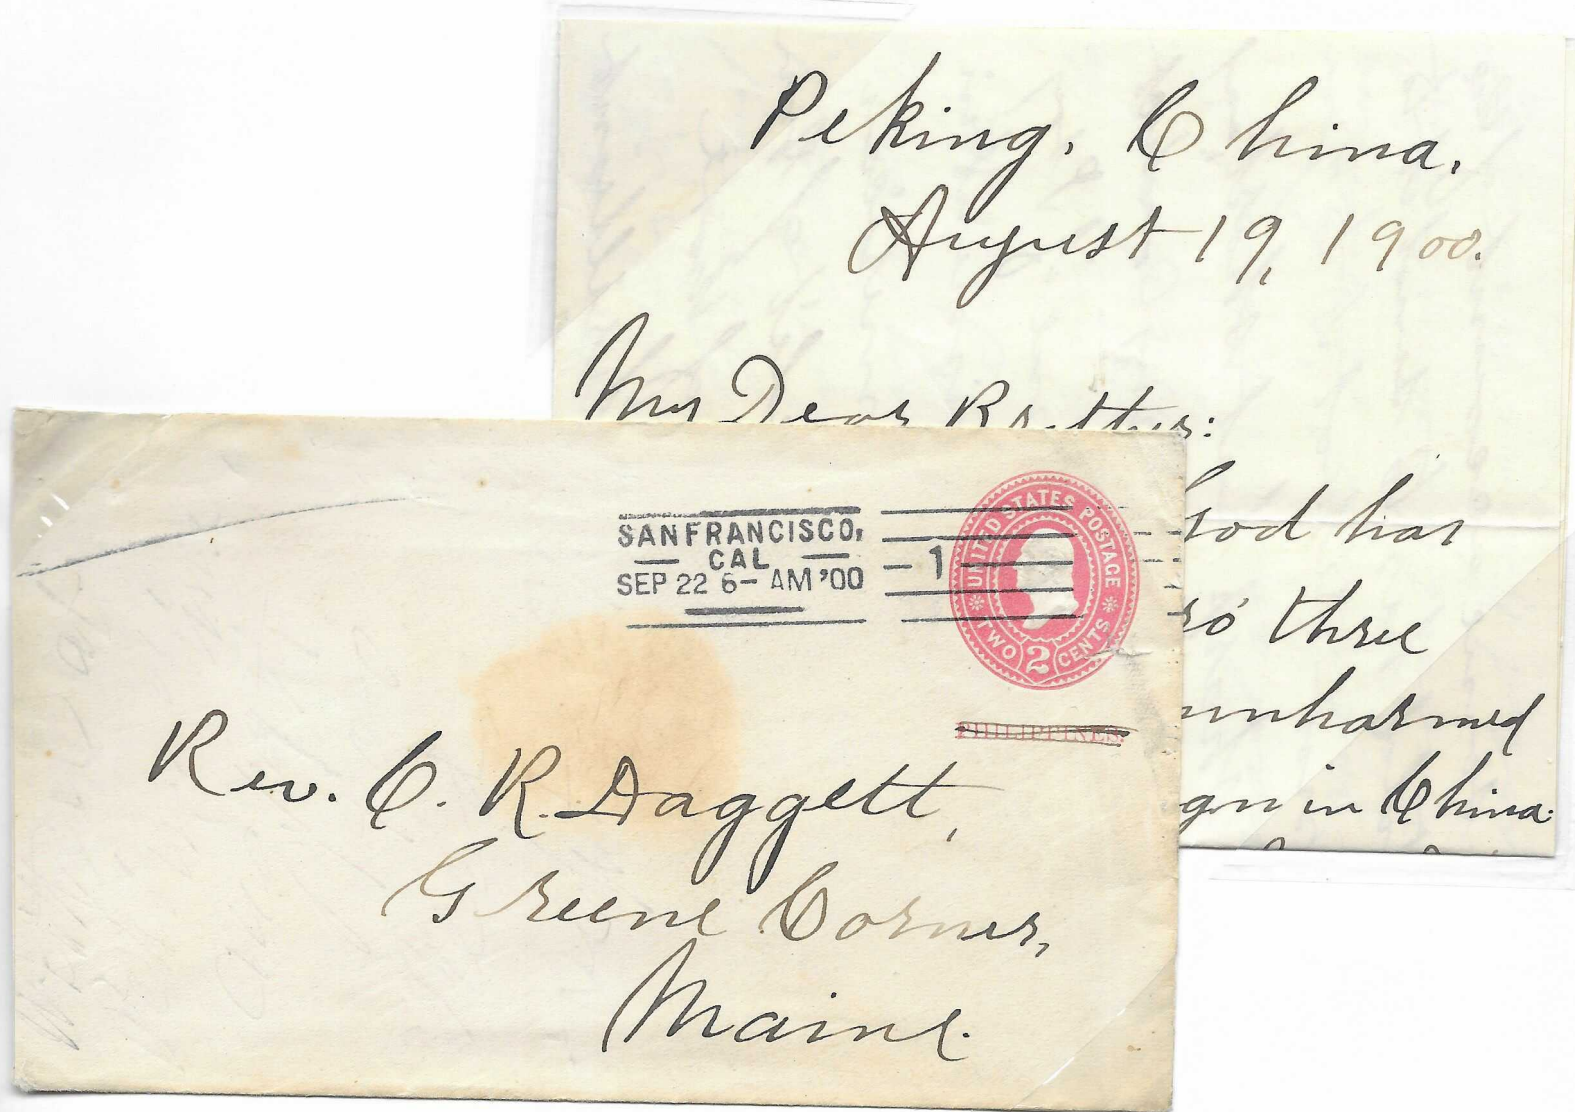 Peking, China.
August 19, 1900.
My Dear Brother:
God has
three
unharmed
in China.
SAN FRANCISCO,
CAL
SEP 22 6- AM '00
1
UNITED STATES POSTAGE
TWO 2 CENTS
PHILIPPINES.
Rev. C. R. Daggett,
Greene Corner,
Maine.